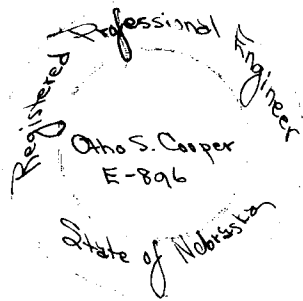 Registered Professional Engineer
Otho S. Cooper
E-896
State of Nebraska